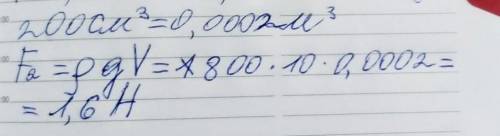 200см³=0,0002м³
Fa=ρgV=800·10·0,0002=
=1,6Н